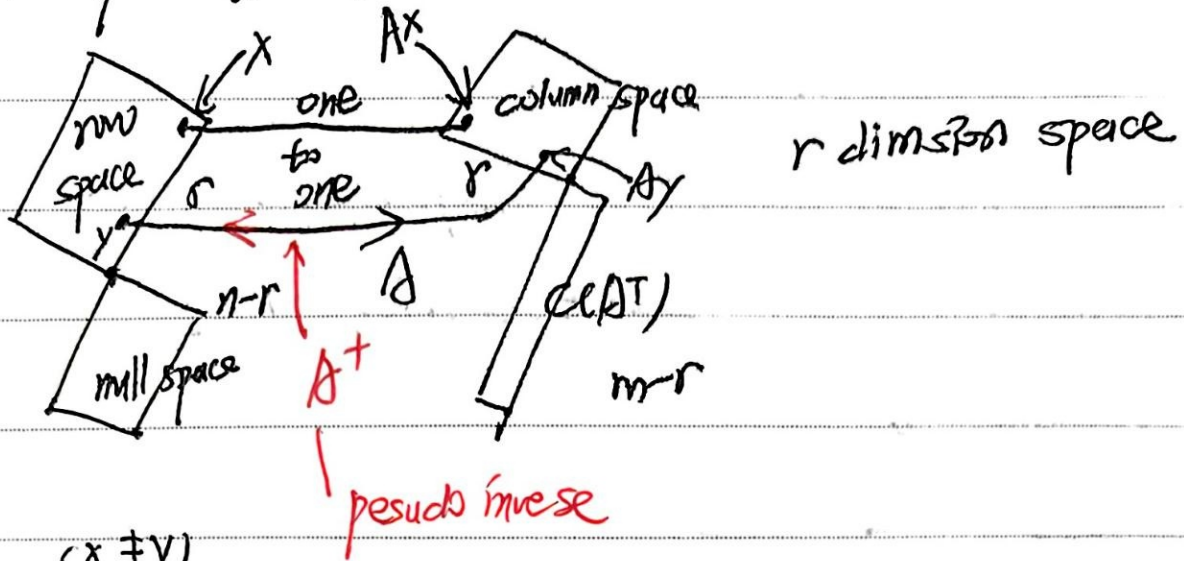 x
Ax
row
space
one
to
one
column space
r dimsion space
r
r
Ay
y
A
n-r
C(AT)
null space
A+
m-r
pesudo invese
(x ≠ y)